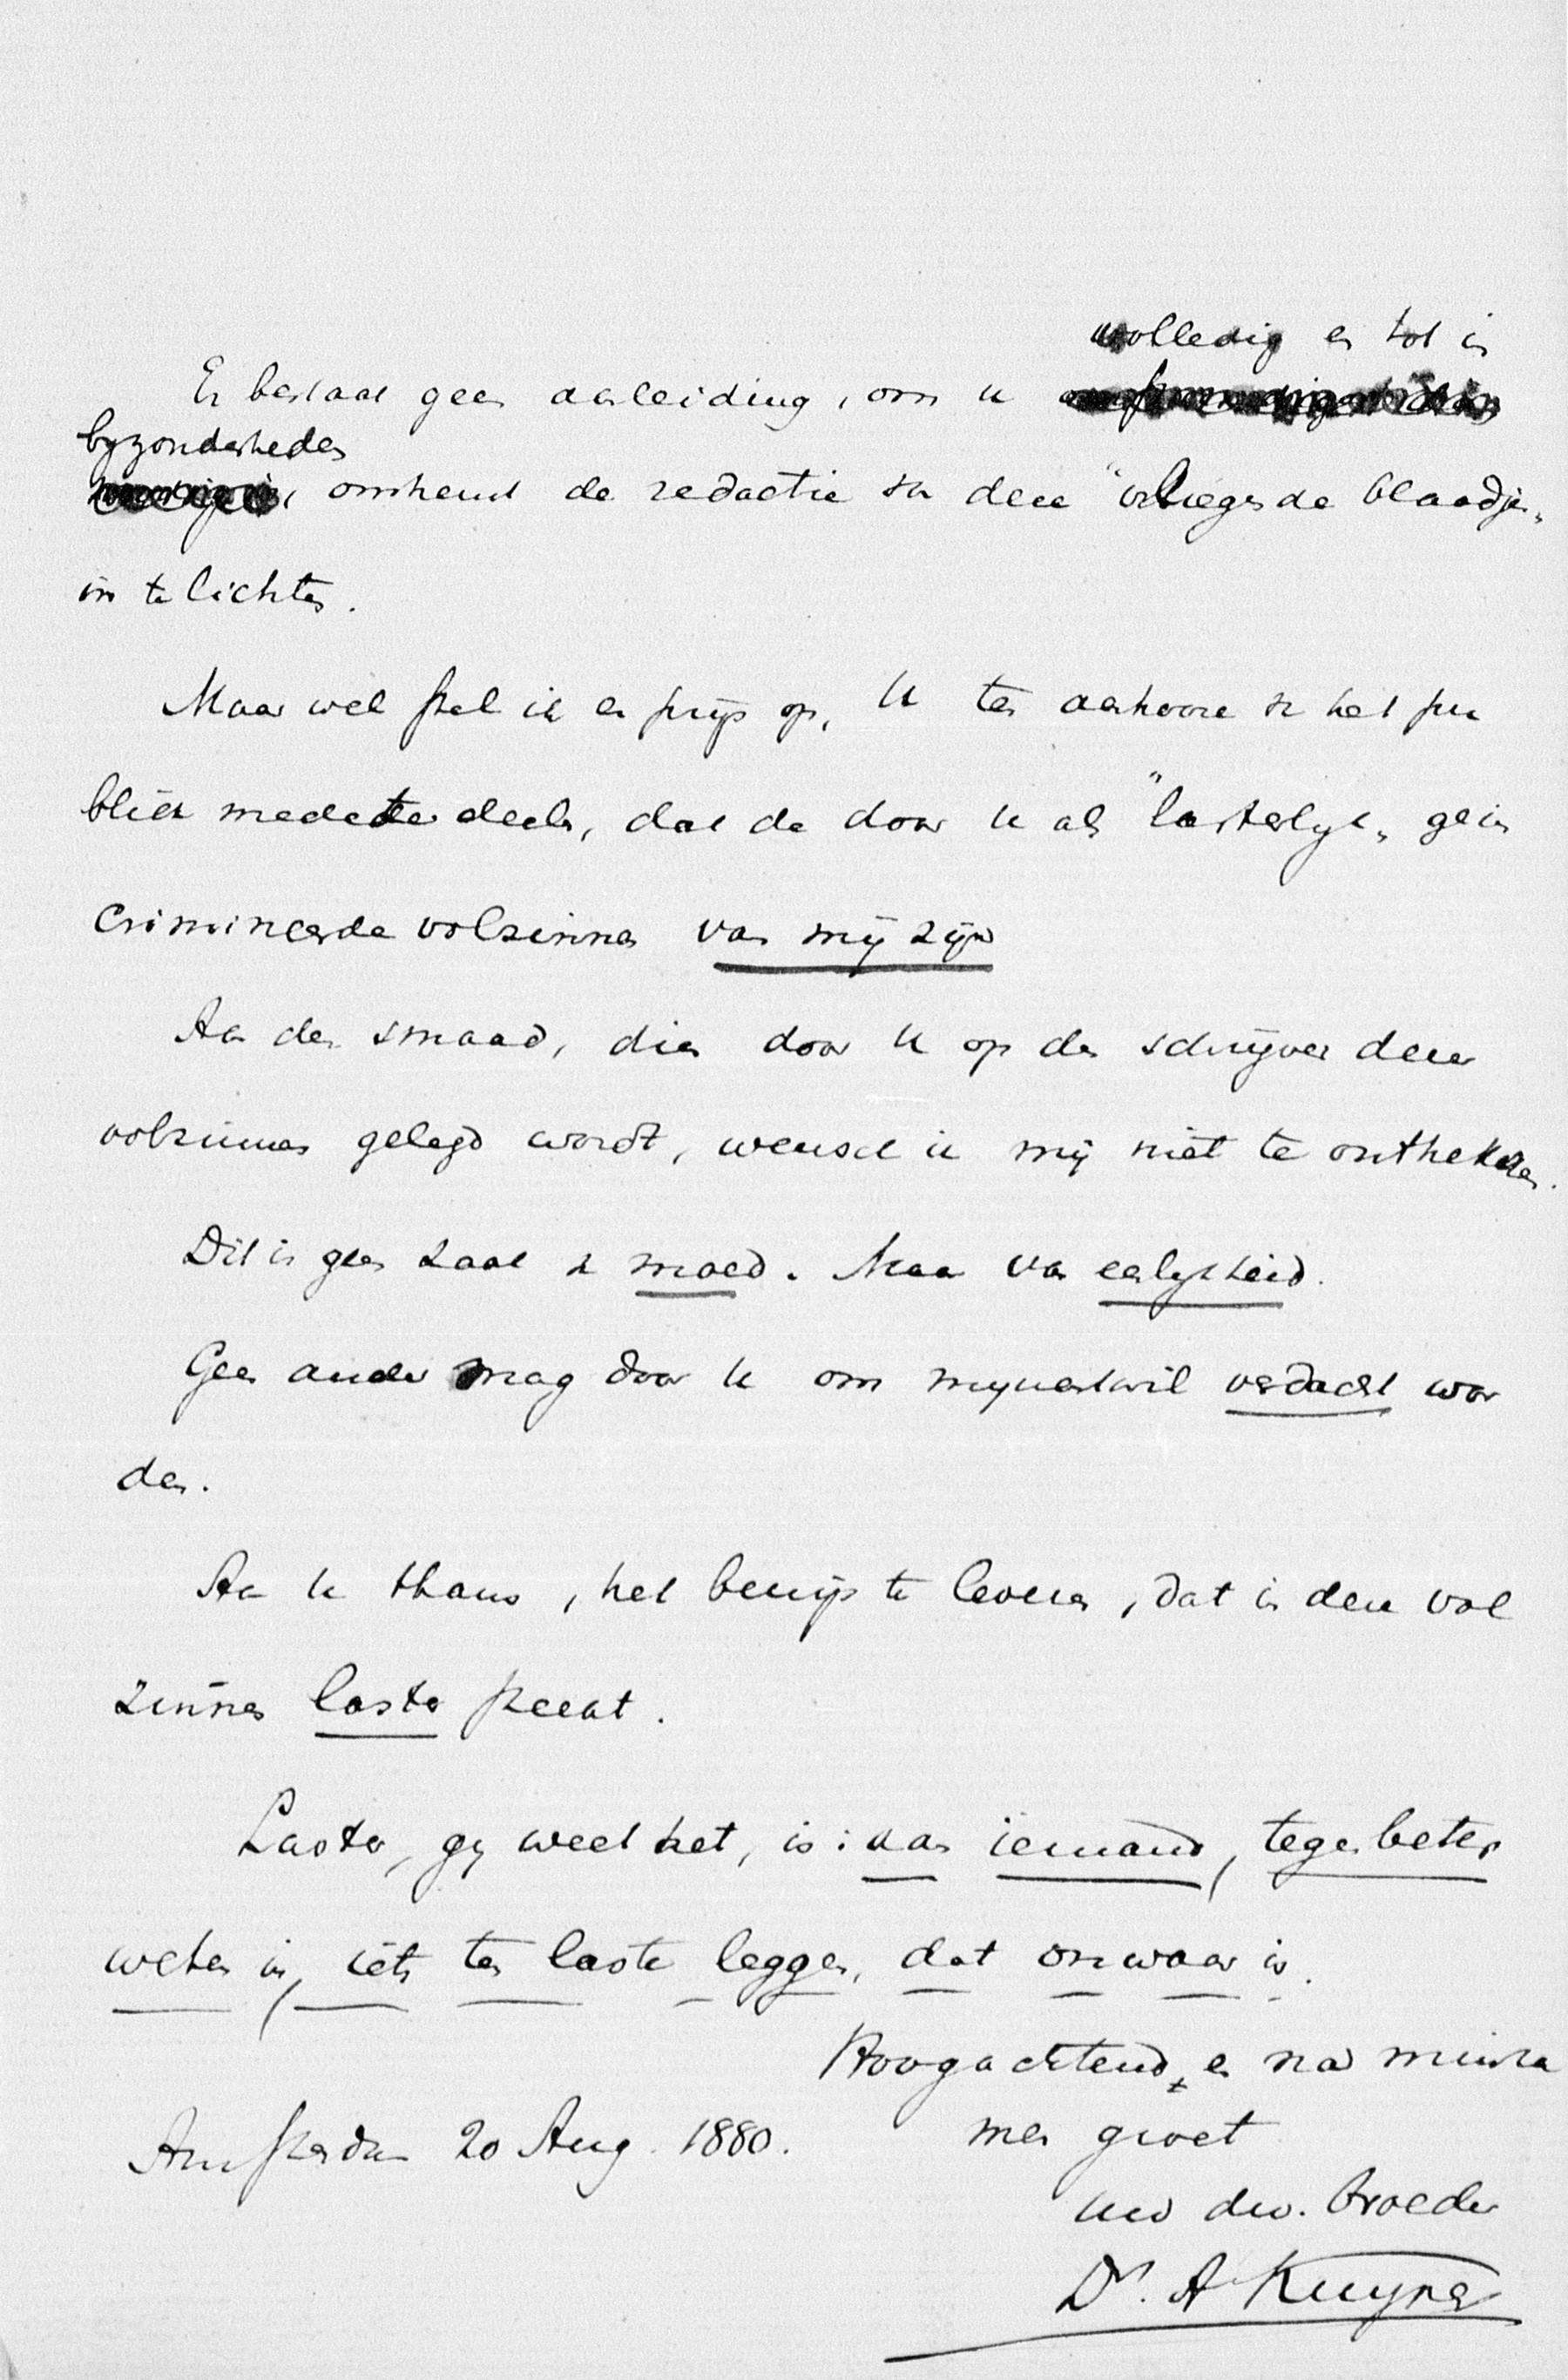 volledig en tot in
Er bestaat geen aanleiding, om u
byzonderheden
omtrent de redactie van deze "vliegende blaadjes„
in te lichten.
Maar wel stel ik er prijs op, U ten aanhoore van het pu
bliek mede te deelen, dat de door U als "lasterlyk„ gein
crimineerde volzinnen van mij zijn
Aan den smaad, dien door U op den schrijver dezer
volzinnen gelegd wordt, wensch ik mij niet te onttrekken.
Dit is geen zaak van moed. Maar van eerlykheid.
Geen ander mag door U om mynentwil verdacht wor
den.
Aan U thans, het bewijs te leveren, dat in deze vol
zinnen laster steekt.
Laster, gy weet het, is: aan iemand, tegen beter
weten in, iets ten laste leggen, dat onwaar is.
Hoogachtend, en na minza
men groet
Amsterdam 20 Aug. 1880.
uw dw. broeder
Dr. A Kuyper